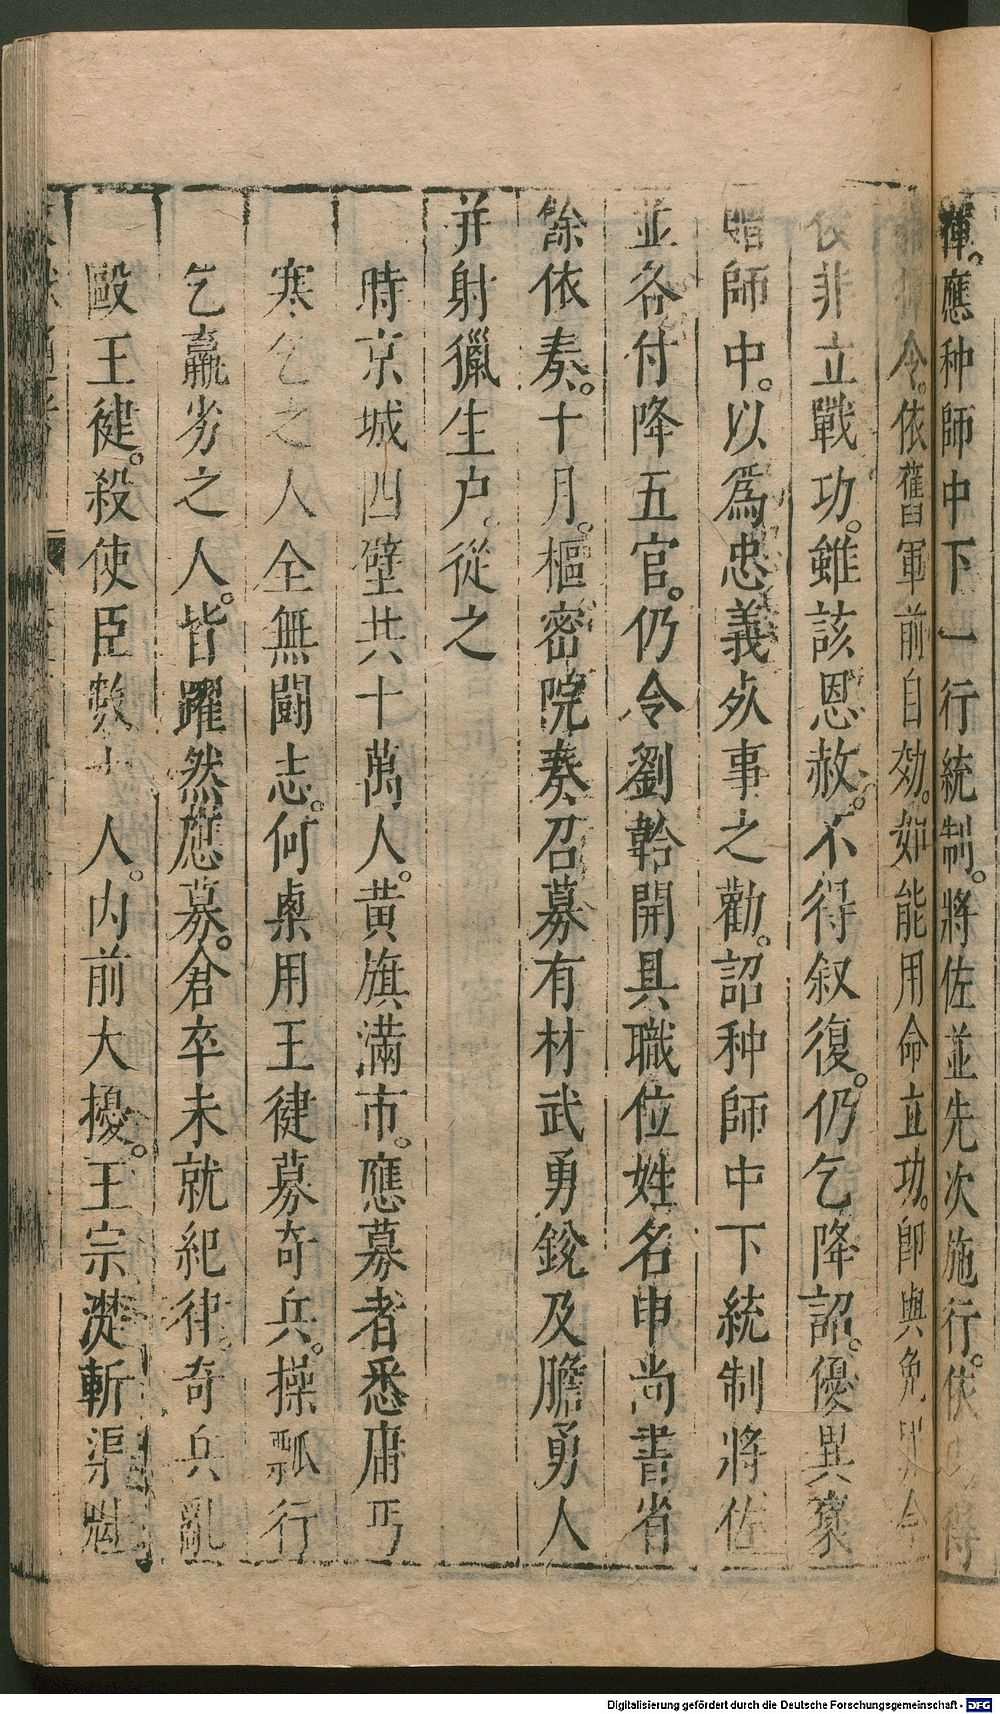 應种師中下一行統制。將佐並先次施行。依
令。依舊軍前自効。如能用命立功。卽與免
後非立戰功。雖該恩赦。不得叙復。仍乞降詔。優異褒
贈師中。以爲忠義死事之勸。詔种師中下統制將佐
並各付降五官。仍令劉韐開具職位姓名申尚書省
餘依奏。十月。樞密院奏召募有材武勇銳及膽勇人
并射獵生户。從之
時京城四壁共十萬人。黃旗滿市。應募者悉庸丐
寒乞之人全無鬪志。何㮚用王健募奇兵。操瓢行
乞羸劣之人。皆躍然應募。倉卒未就紀律。奇兵亂
毆王健。殺使臣數十人。內前大擾。王宗濋斬渠魁
Digitalisierung gefördert durch die Deutsche Forschungsgemeinschaft - DFG